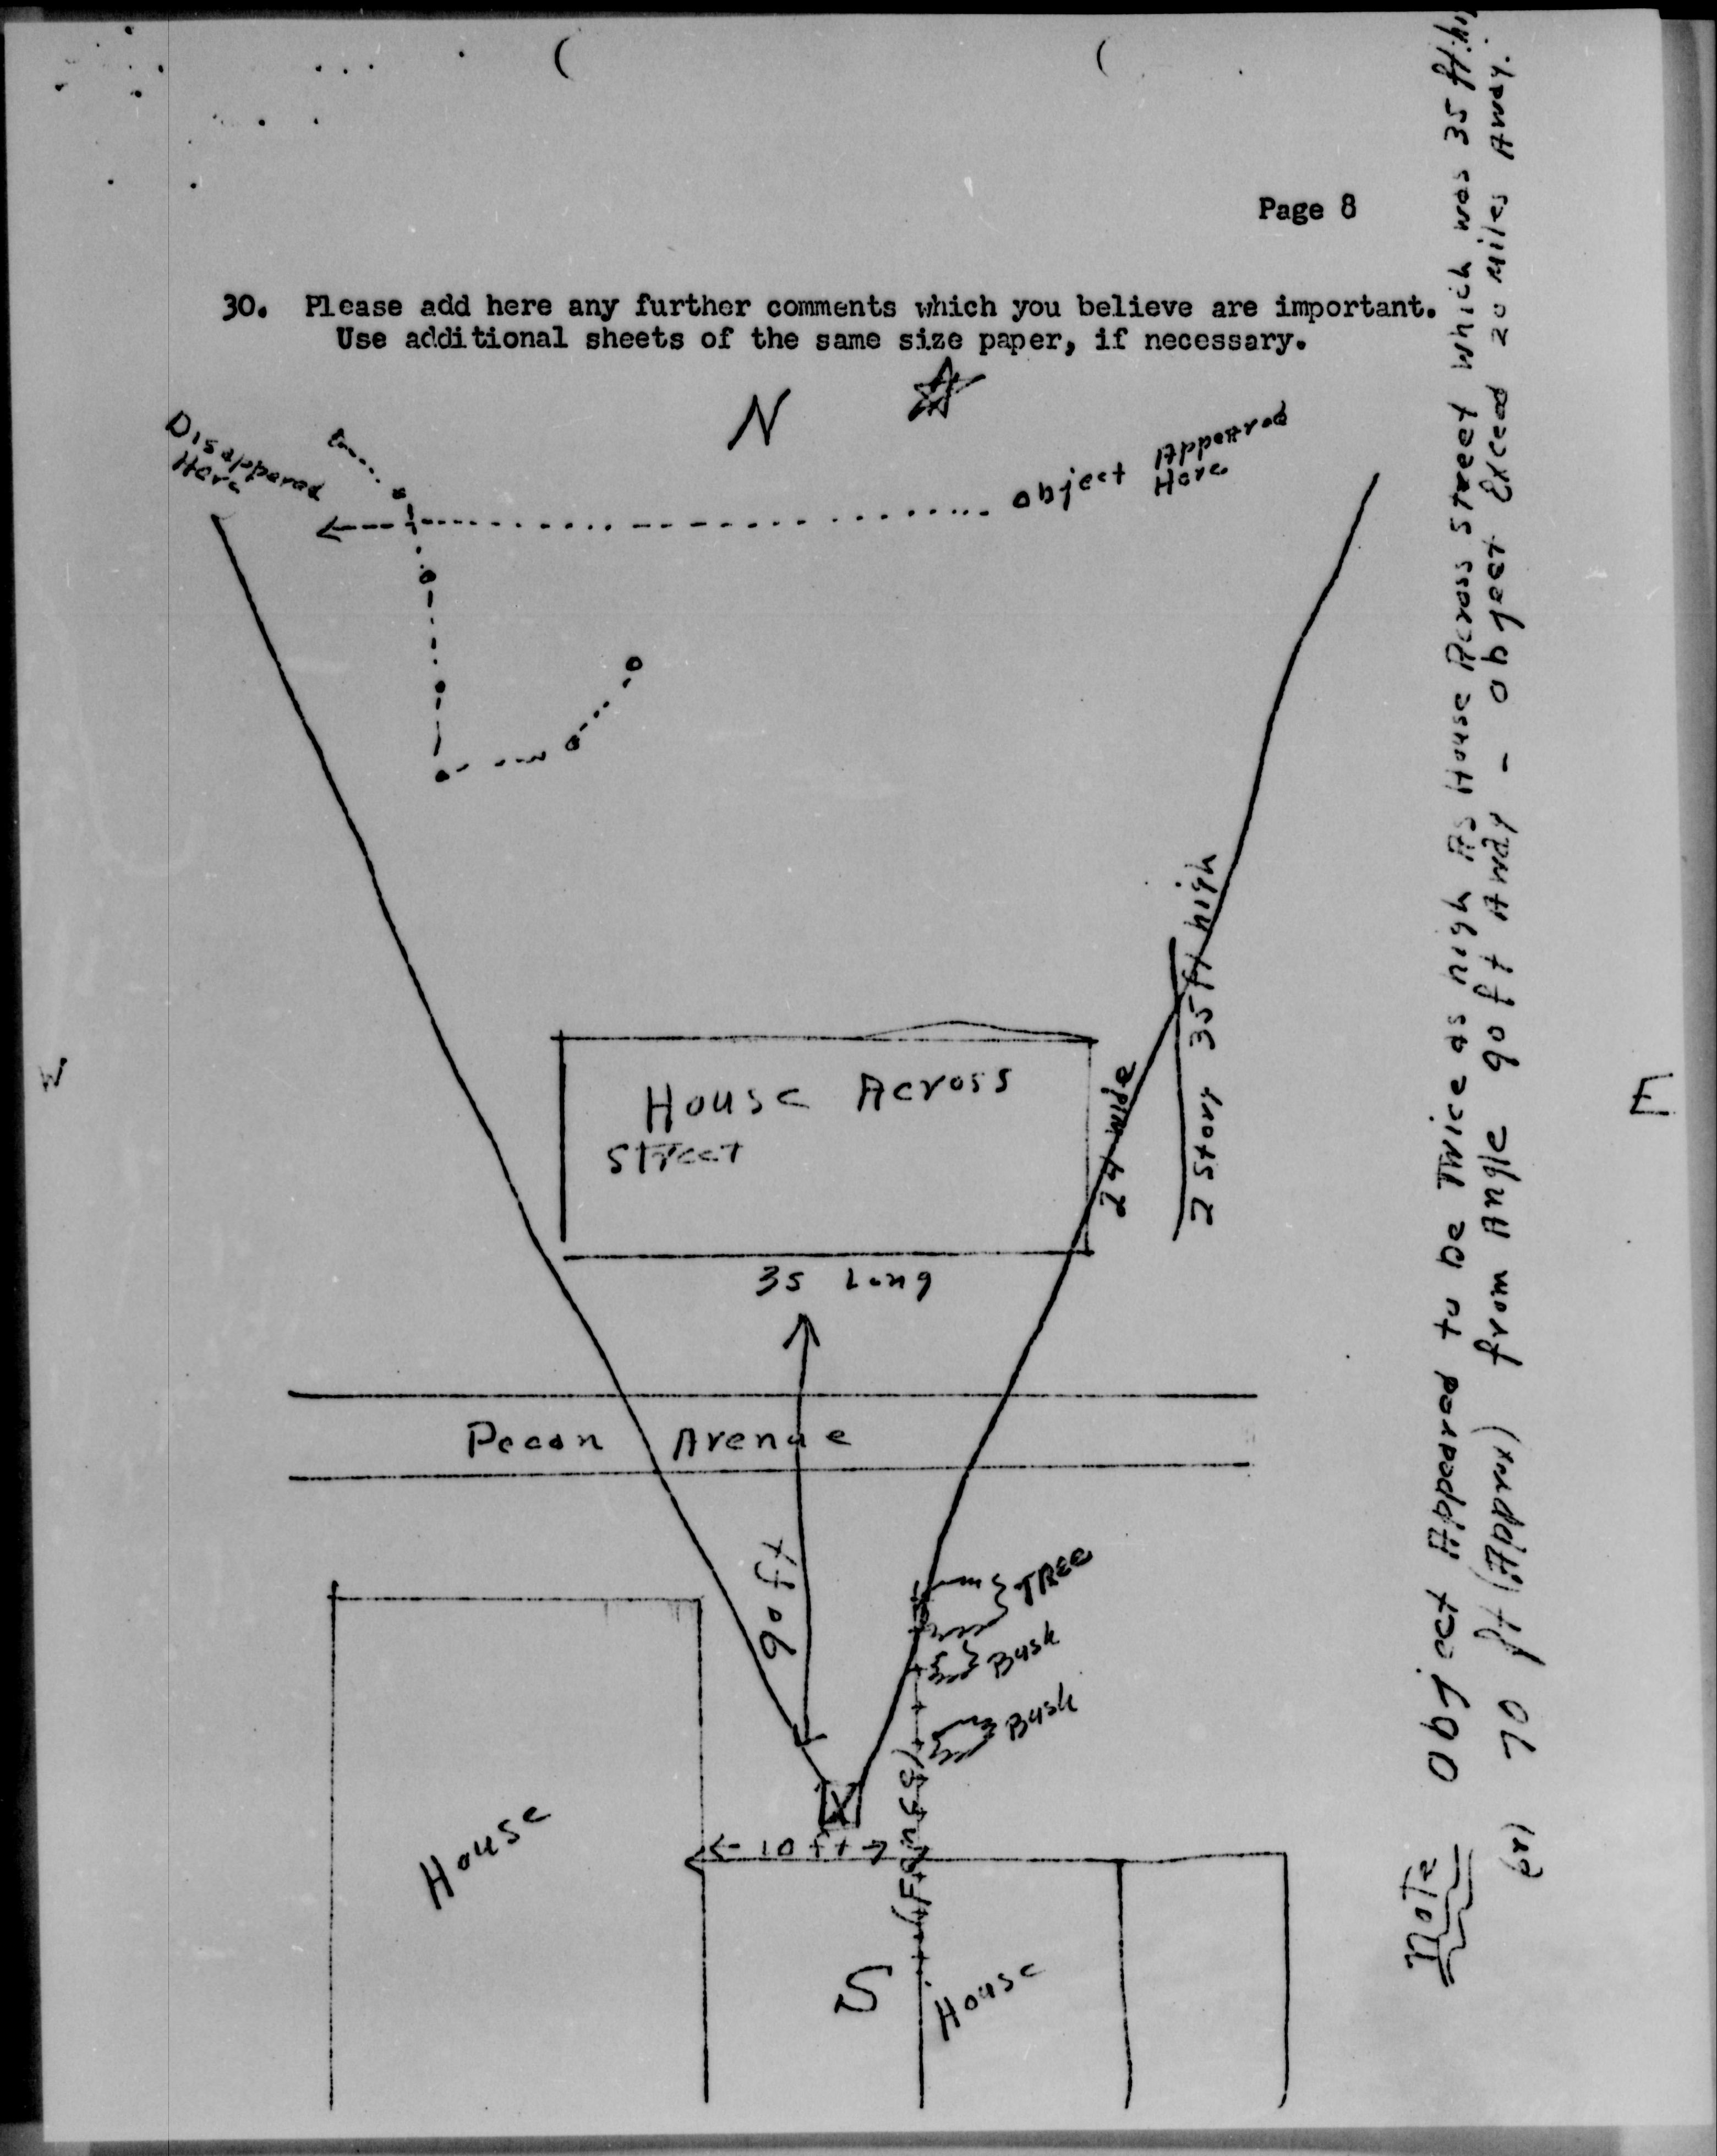 Page 8
30. Please add here any further comments which you believe are important.
Use additional sheets of the same size paper, if necessary.
N
Disappered
Here
object Appeared
Here
W
E
House Across
Street
24 wide
2 story 35 ft high
35 Long
Pecan Avenue
90 ft
TREE
Bush
Bush
(Fence)
← 10 ft →
House
S
House
Note Object Appeared to be Twice as high As House Across Street which was 35 ft hi
(or) 70 ft (Approx) from Angle 90 ft Away - object Exceed 20 Miles Away.